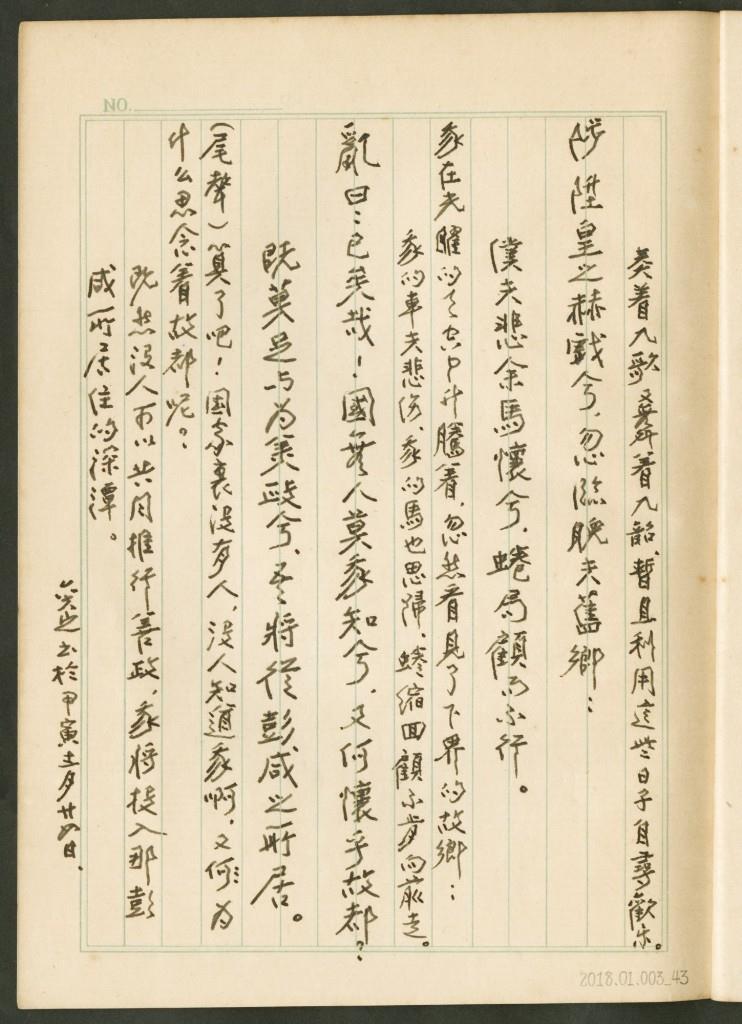 NO.
奏着九歌舞着九韶、暫且利用這些日子自尋歡樂。
陟陞皇之赫戲兮、忽臨睨夫舊鄉：
僕夫悲余馬懷兮、蜷局顧而不行。
我在光曜的天空中升騰着、忽然看見了下界的故鄉：
我的車夫悲傷、我的馬也思歸、蜷縮回顧不肯向前走。
亂曰：已矣哉！國無人莫我知兮、又何懷乎故都？
既莫足与为美政兮、吾將從彭咸之所居。
（尾聲）算了吧！国家裏没有人、没人知道我啊、又何为
什么思念着故都呢？
既然没人可以共同推行善政、我将投入那彭
咸所居住的深潭。
於甲寅十二月廿四日、
2018.01.003_43